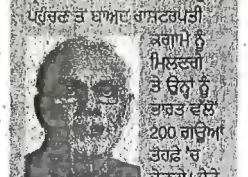 ਪਹੁੰਚਣ ਤੋਂ ਬਾਅਦ ਰਾਸ਼ਟਰਪਤੀ
ਕਗਾਮੇ ਨੂੰ
ਮਿਲਣਗੇ
ਤੇ ਉਨ੍ਹਾਂ ਨੂੰ
ਭਾਰਤ ਵਲੋਂ
200 ਗਊਆਂ
ਤੋਹਫ਼ੇ 'ਚ